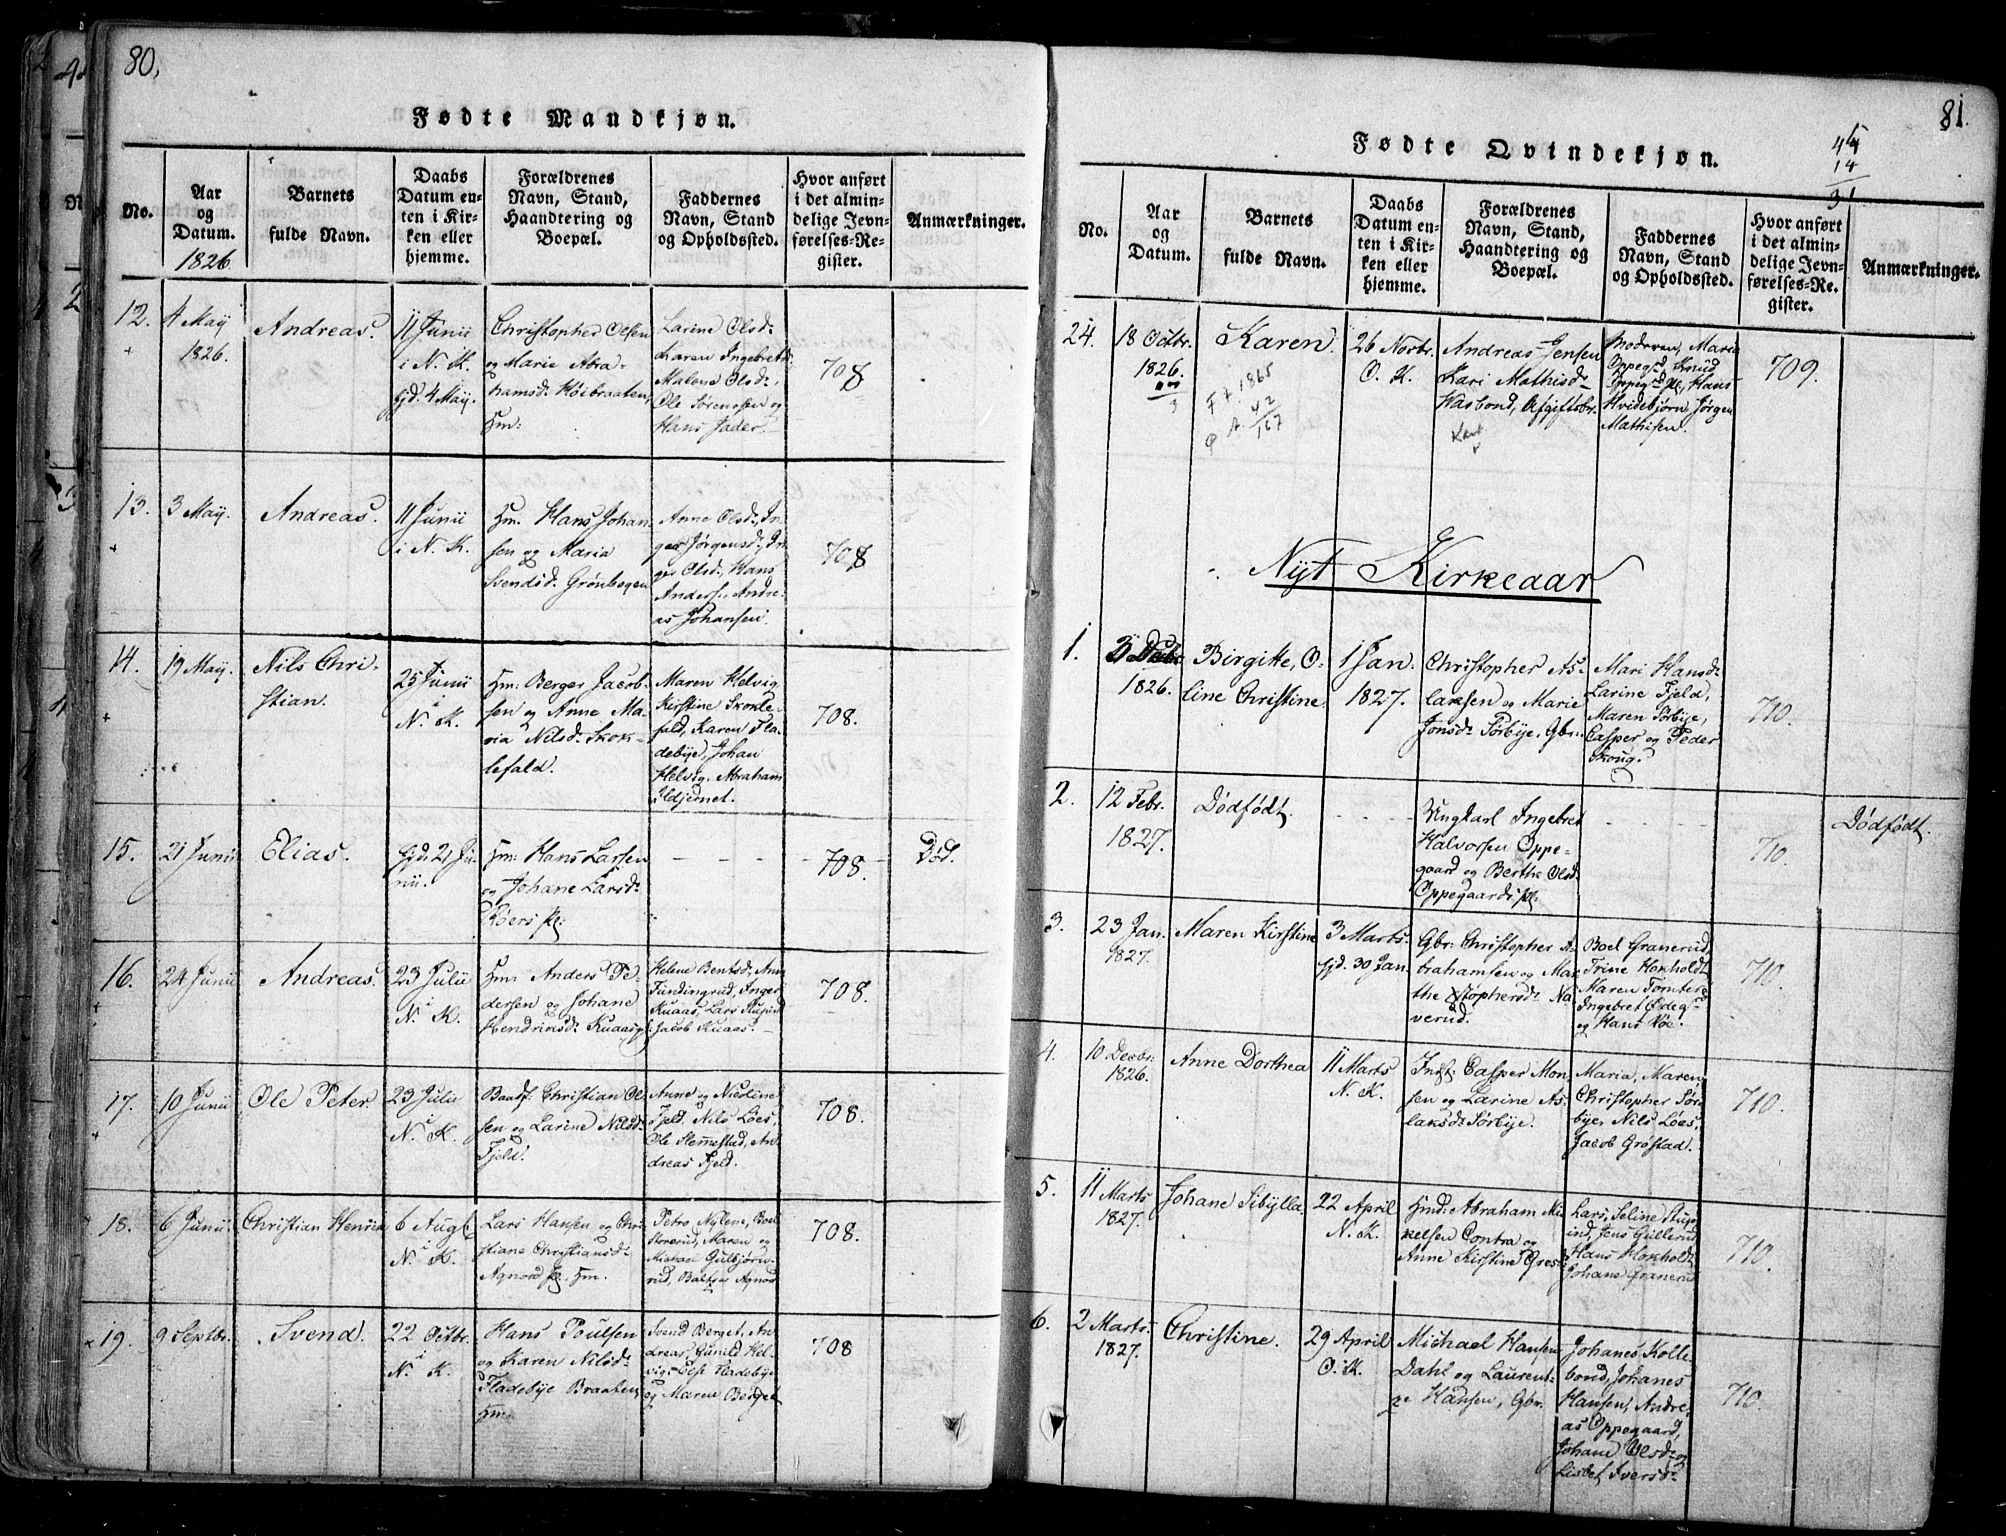 80.
Fødte Mandkjøn.
No.
Aar
og
Datum.
1826
Barnets
fulde Navn.
Daabs
Datum en-
ten i Kir-
ken eller
hjemme.
Forældrenes
Navn, Stand,
Haandtering og
Boepæl.
Faddernes
Navn, Stand
og Opholdssted.
Hvor anført
i det almin-
delige Jevn-
førelses-Re-
gister.
Anmærkninger.
12.
4 May
1826.
Andreas.
11 Junii
i N. K.
hjd. 4 May.
Christopher Olsen
og Marie Abra-
hamsd. Höibraaten,
Hm:
Larine Olsd:
Karen Ingebretsd:
Malene Olsd:,
Ole Sørensen og
Hans Jader.
708
13.
3 May.
Andreas.
11 Junii
i N. K.
Hm. Hans Johan-
sen og Maria
Svendsd: Grönbegen
Anne Olsd:, In-
ger Jörgensd:, In-
ger Olsd:, Hans
Anders:, Andre-
as Johansen.
708
14.
19 May.
Nils Chri-
stian.
25 Junii
i
N. K.
Hm: Berger Jacob-
sen og Anne Ma-
ria Nilsd: Skok-
lefald.
Maren Helvig
Kirstine Skokle-
fald, Karen Fla-
debye, Johan
Helvig, Abraham
Ildjernet.
708.
15.
21 Junii
Elias.
hjd: 21 Ju-
nii.
Hm: Hans Larsen
og Johane Larsd:
Röers pl:
708.
Död.
16.
24 Junii
Andreas.
23 Julii
i
N. K.
Hm: Anders Pe-
dersen og Johane
Hendriksd: Kuaaspl:
Helene Bentsd:, Anne
Fundingrud, Inger
Kuaas, Lars Stupind
Jacob Kuaas.
708.
17.
10 Junii
Ole Peter.
23 Julii
i
N. K.
Baads. Christian Ol-
sen og Larine Nilsd:
Fjeld.
Anne og Nicoline
Fjeld, Nils Löes,
Ole Hemmestad, An-
dreas Fjeld.
708.
18.
6 Junii.
Christian Henrich
6 Augl.
i
N. K.
Lars Hansen og Chri-
stiane Christiansd:
Agnord pl. Hm.
Petro Nylene, Boel
Storerud, Maren og
Michael Gulbjörn-
rud, Baltzer Agnord
708.
19.
9 Septbr.
Svend.
22 Octbr.
i
N. K.
Hans Poulsen
og Karen Nilsd:
Fladebye Braaten,
Hm:
Svend Berget, An-
dreas, Gunild Hel-
vig, Else Fladebye
og Maren Berget
708
81.
Fødte Qvindekjøn.
14
31
No.
Aar
og
Datum.
Barnets
fulde Navn.
Daabs
Datum en-
ten i Kir-
ken eller
hjemme.
Forældrenes
Navn, Stand,
Haandtering og
Boepæl.
Faddernes
Navn, Stand
og Opholdssted.
Hvor anført
i det almin-
delige Jevn-
førelses-Re-
gister.
Anmærkninger.
24.
18 Octbr.
1826.
Karen.
F.t. 1865
42
167
26 Novbr.
O. K.
Andreas Jensen
Kari Mathisd:
Hasbond, Afgiftsbr.
Moderen, Maria
Oppegrd, Knud
Oppegrd pl, Hans
Hvidebjörn, Jörgen
Mathisen.
709.
Nyt Kirkeaar
1.
3 Decbr.
1826.
Birgitte, O-
line Christine.
1 Jan.
1827.
Christopher As-
laksen og Marie
Jonsd: Sörbye, Gbr.
Mari Hansd:
Larine Fjeld,
Maren Sörbye,
Casper og Peder
Skoug.
710.
2.
12 Febr.
1827.
Dödfödt.
Ungkarl Ingebret
Halvorsen Oppe-
gaard og Berthe Olsd:
Oppegaards pl:
710.
Dödfödt.
3.
23 Jan.
1827.
Maren Kirstine
3 Marts.
hjd. 30 Jan.
Gbr: Christopher A-
brahamsen og Mar-
the Xstophersd: Na-
verud.
Boel Granerud,
Trine Hoxholdt
Maren Tomter
Ingebret Ödeg:
og Hans Röe.
710.
4.
10 Decbr.
1826.
Anne Dorthea
11 Marts
N. K.
Inds: Casper Mon-
sen og Larine As-
laksd: Sörbye.
Maria, Maren,
Christopher Sör-
bye, Nils Löes,
Jacob Gröstad.
710.
5.
11 Marts
1827.
Johane Sibylla
22 April
N. K.
Hmd: Abraham Mi-
kelsen Contra og
Anne Kirstine Gres-
Lars, Seline Stup-
ind, Jens Gullerud
Hans Hoxholdt
Johane Granerud
710.
6.
2 Marts.
1827.
Christine.
29 April
O. K.
Michael Hansen
Dahl og Laurent-
ze Hansen, Gbr.
Johanes Kolle-
bond, Johanes
Hansen, Andre-
as Oppegaard,
Johane Olsd: og
Lisbet Iversd:
710.